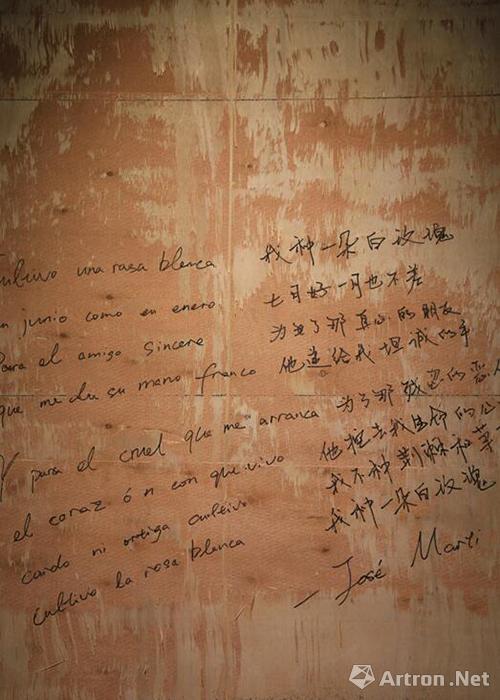 Cultivo una rosa blanca
en junio como en enero
Para el amigo sincere
que me da su mano franco
Y para el cruel que me arranca
el coraz ón con que vivo
cardo ni ortiga cultivo
cultivo la rosa blanca
我种一朵白玫瑰
七月好一月也不差
为了那真心的朋友
他递给我坦诚的手
为了那残忍的恶人
他挖去我生命的心
我不种荆棘和
我种一朵白玫瑰
— José Marti
Artron.Net